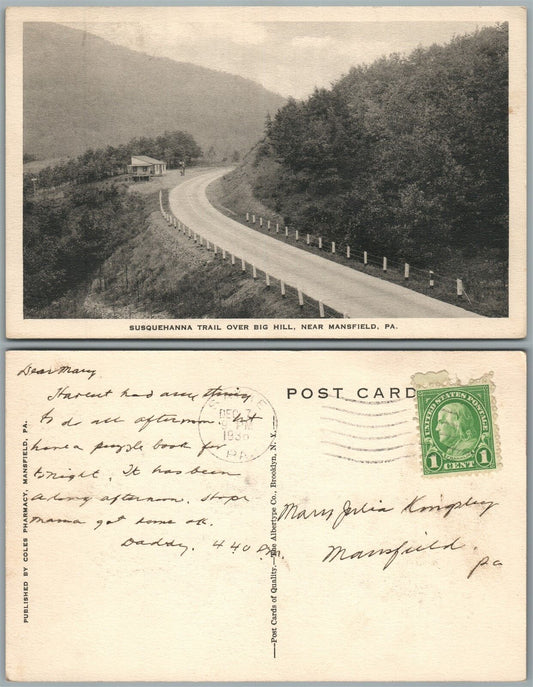 SUSQUEHANNA TRAIL OVER BIG HILL, NEAR MANSFIELD, PA.
Dear Mary
Havent had any thing
to do all afternoon but
have a puzzle book for
tonight. It has been
a long afternoon. Hope
mama got home ok.
Daddy. 4 40 P.M.
PUBLISHED BY COLES PHARMACY, MANSFIELD, PA.
DEC 7
PM
193
PA
—Post Cards of Quality.—The Albertype Co., Brooklyn, N. Y.—
POST CARD
UNITED STATES POSTAGE
1 CENT 1
Mary Julia
Mansfield.
Pa